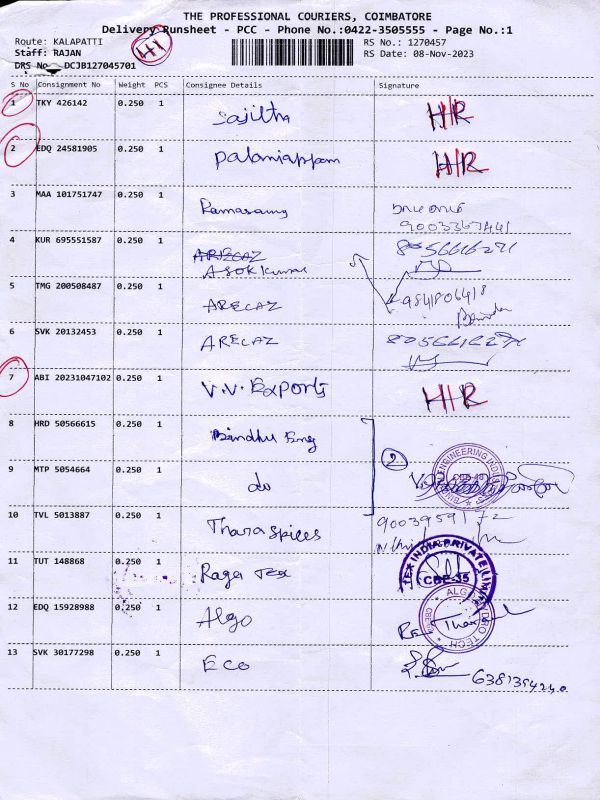 THE PROFESSIONAL COURIERS, COIMBATORE
Delivery Runsheet - PCC - Phone No.:0422-3505555 - Page No.:1
Route: KALAPATTI
RS No.: 1270457
Staff: RAJAN
RS Date: 08-Nov-2023
DRS No DCJB127045701
S No Consignment No Weight PCS Consignee Details Signature
1 TKY 426142 0.250 1 Sajitha H/R
2 EDQ 24581905 0.250 1 Palaniappan H/R
3 MAA 101751747 0.250 1 Ramasamy
4 KUR 695551587 0.250 1 ARECAZ
Asokkumar
5 TMG 200508487 0.250 1 ARECAZ 9841806418
6 SVK 20132453 0.250 1 ARECAZ
7 ABI 20231047102 0.250 1 V.V. Exports H/R
8 HRD 50566615 0.250 1 Bindhu Eng
2
ENGINEERING INDIA
9 MTP 5054664 0.250 1 do
10 TVL 5013887 0.250 1 Thara Spices 9003959172
11 TUT 148868 0.250 1 Raga Tex
TEX INDIA PRIVATE LIMITED
CBE-35
12 EDQ 15928988 0.250 1 Algo
13 SVK 30177298 0.250 1 ECO